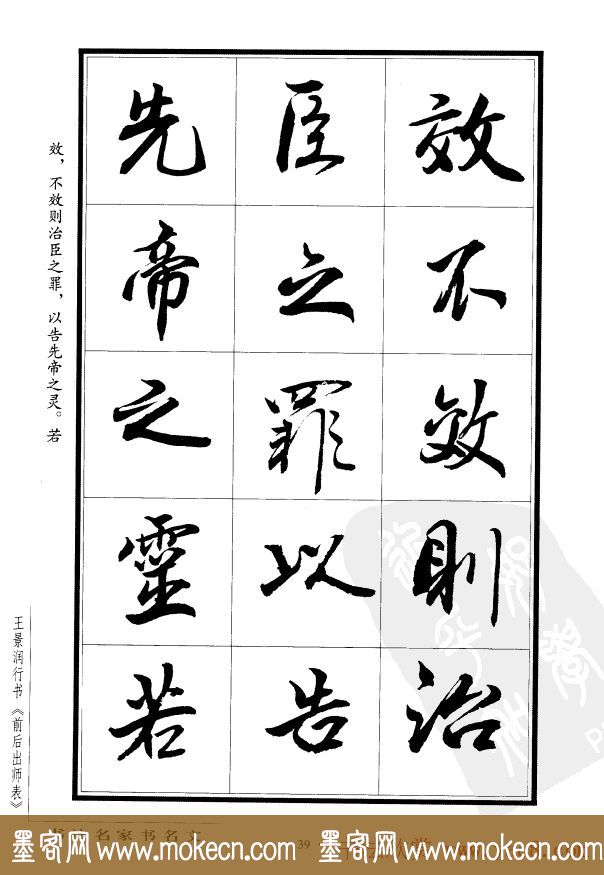 效不效则治
臣之罪以告
先帝之靈若
效，不效则治臣之罪，以告先帝之灵。若
王景润行书《前后出师表》
书法名家书名文
39
墨客网www.mokecn.com 墨客网www.mokecn.com